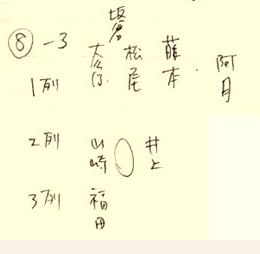 ⑧-3
1列 大沼 松尾 藤本 阿月
2列 山崎 井上
3列 福田